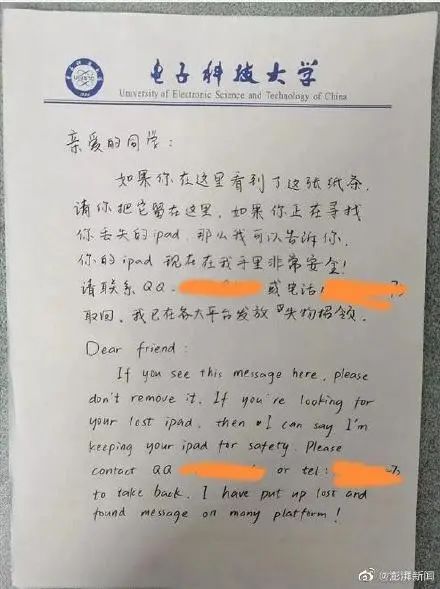 电子科技大学
University of Electronic Science and Technology of China
亲爱的同学：
如果你在这里看到了这张纸条，
请你把它留在这里，如果你正在寻找
你丢失的ipad，那么我可以告诉你，
你的ipad 现在在我手里非常安全！
请联系QQ 或电话：
取回，我已在各大平台发放"失物招领。
Dear friend:
If you see this message here, please
don't remove it. If you're looking for
your lost ipad, then I can say I'm
keeping your ipad for safety. Please
contact QQ or tel:
to take back. I have put up lost and
found message on many platform!
@澎湃新闻